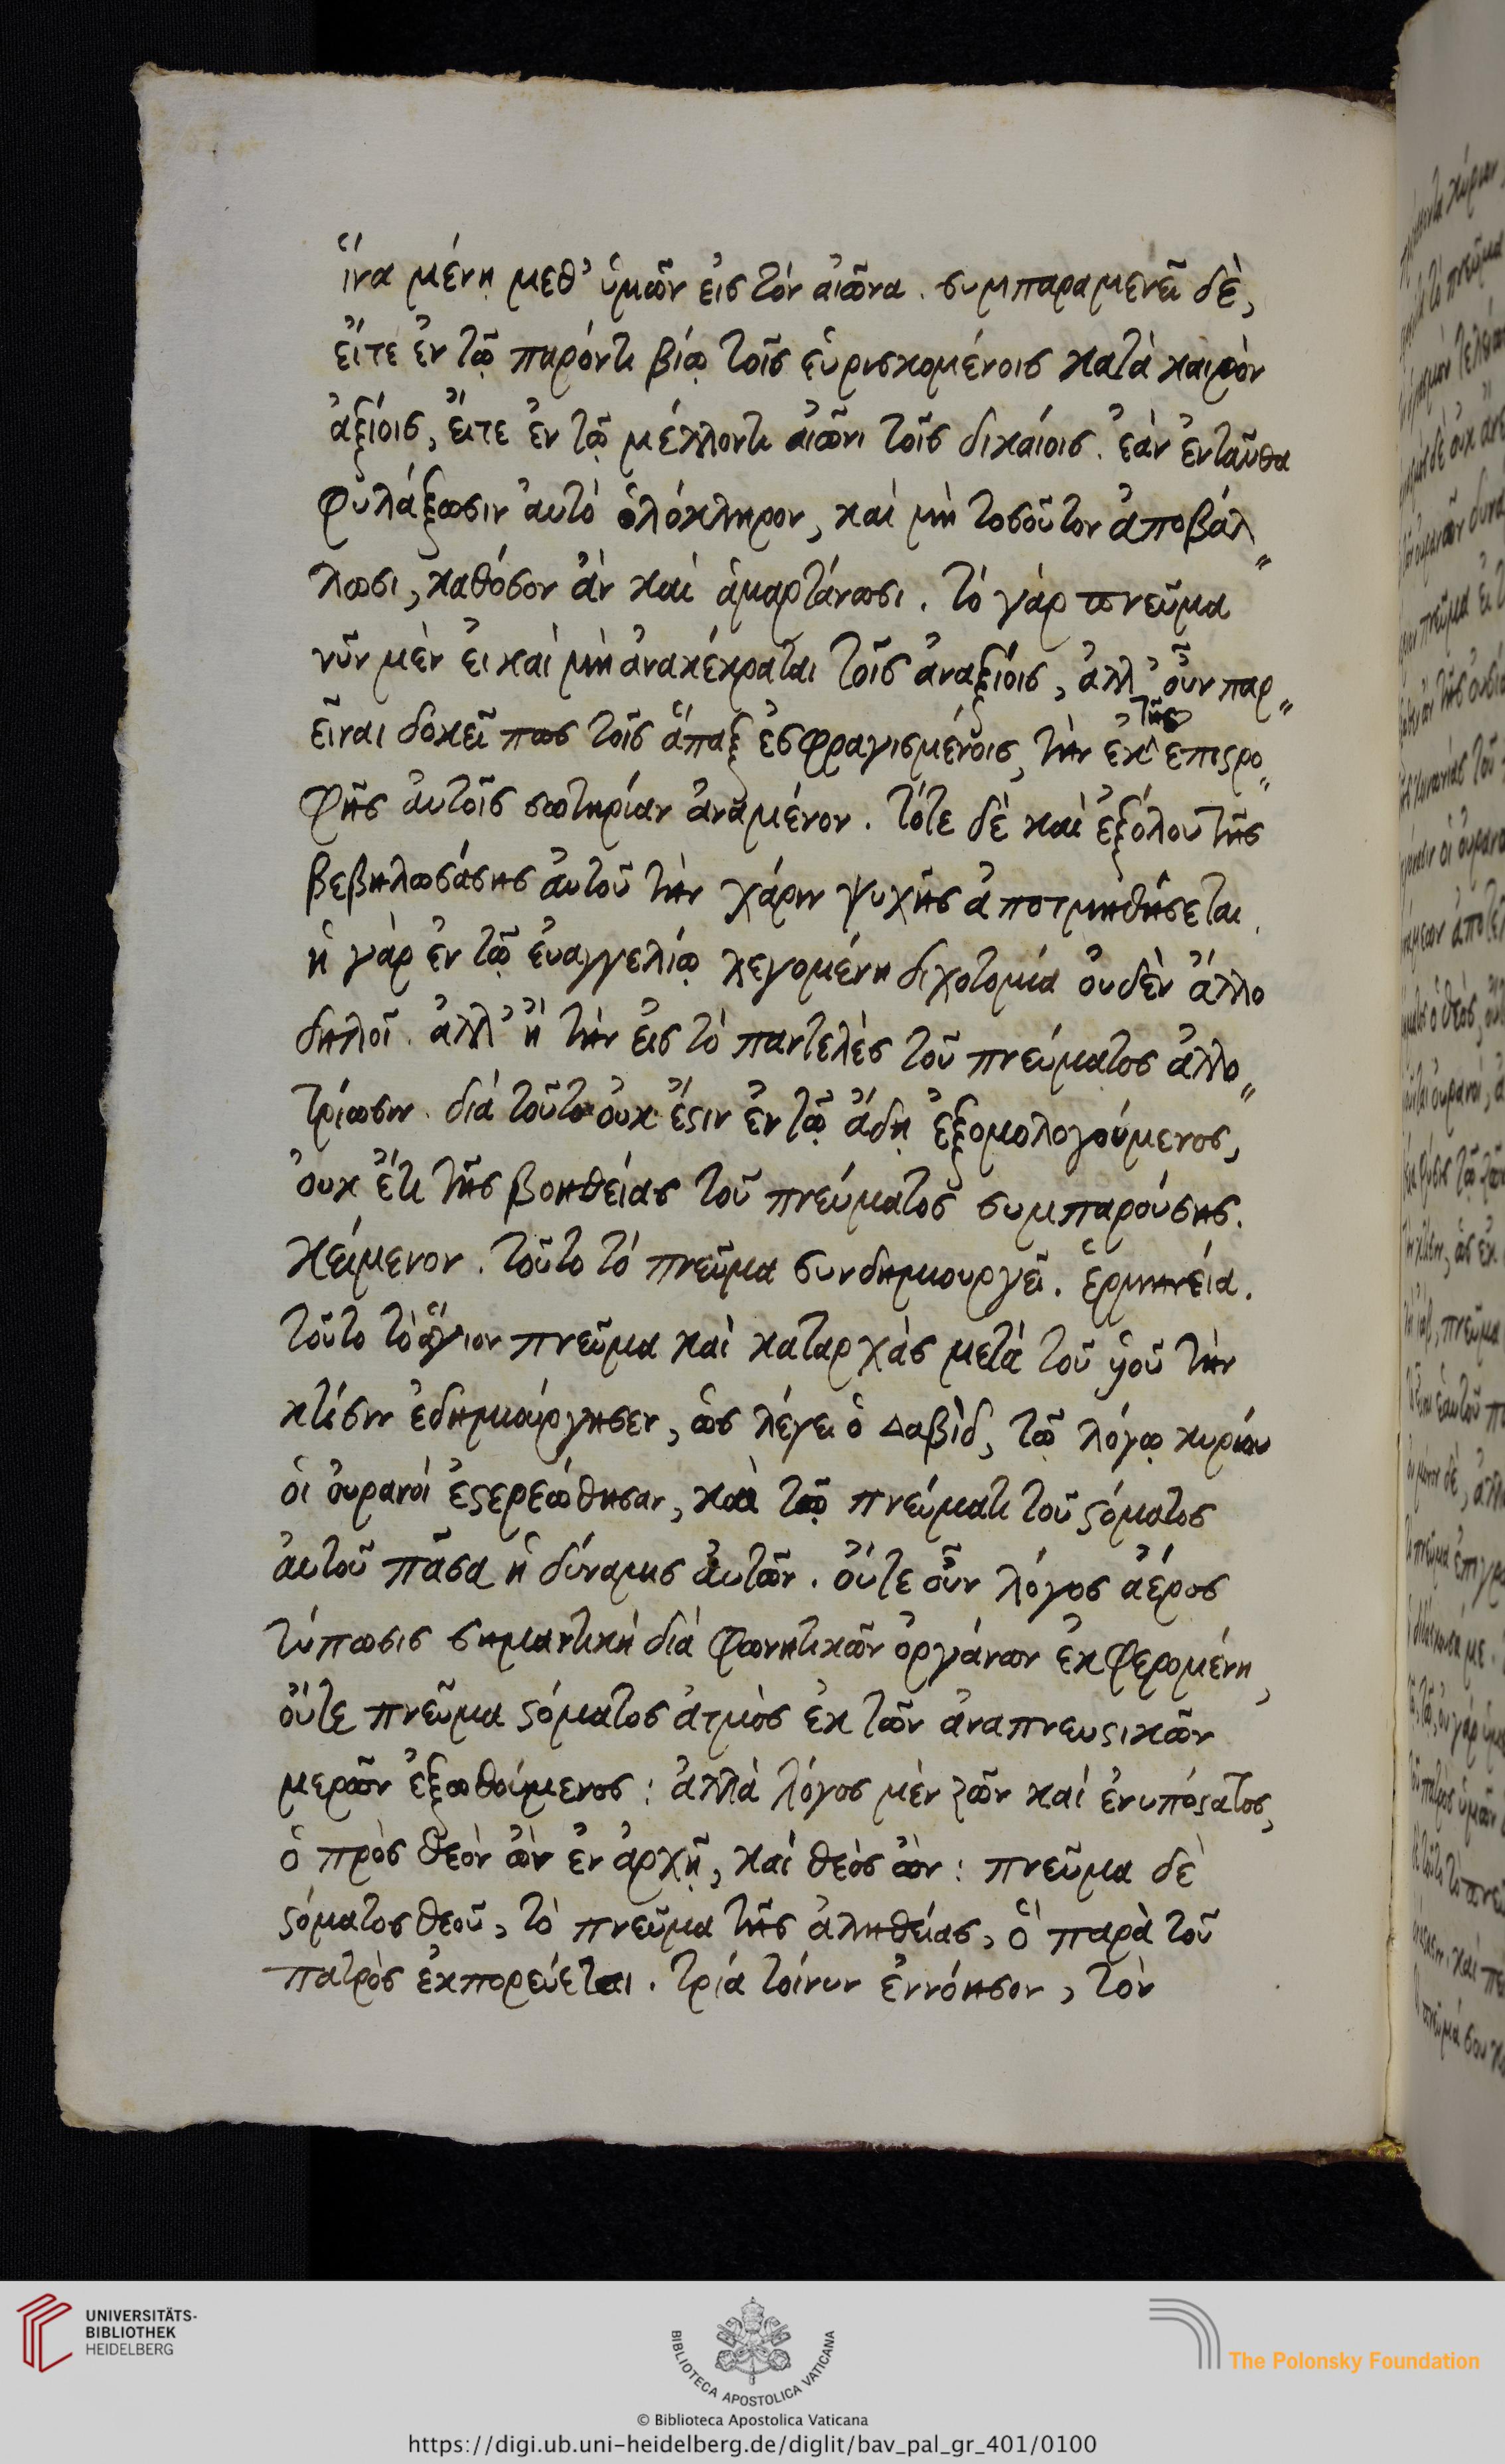 ἵνα μένῃ μεθ' ὑμῶν εἰς τὸν αἰῶνα. συμπαραμενεῖ δὲ,
εἴτε ἐν τῷ παρόντι βίῳ τοῖς εὑρισκομένοις κατὰ καιρὸν
ἀξίοις, εἴτε ἐν τῷ μέλλοντι αἰῶνι τοῖς δικαίοις. ἐὰν ἐνταῦθα
φυλάξωσιν αὐτὸ ὁλόκληρον, καὶ μὴ τοσοῦτον ἀποβάλ〃
λωσι, καθόσον ἂν καὶ ἁμαρτάνωσι. τὸ γὰρ πνεῦμα
νῦν μὲν εἰ καὶ μὴ ἀνακέκραται τοῖς ἀναξίοις, ἀλλ' οὖν παρ〃
εῖναι δοκεῖ πως τοῖς ἅπαξ ἐσφραγισμένοις, τὴν ἐκ τῆς ἐπιϛρο〃
φῆς αὐτοῖς σωτηρίαν ἀναμένον. τότε δὲ καὶ ἐξόλου τῆς
βεβηλωσάσης αὐτοῦ τὴν χάριν ψυχῆς ἀποτμηθήσεται.
ἡ γὰρ ἐν τῷ εὐαγγελίῳ λεγομένη διχοτομία οὐδὲν ἄλλο
δηλοῖ. ἀλλ' ἢ τὴν εἰς τὸ παντελὲς τοῦ πνεύματος ἀλλο〃
τρίωσιν. διὰ τοῦτο οὐκ ἔϛιν ἐν τῷ ἅδῃ ἐξομολογούμενος,
οὐκ ἔτι τῆς βοηθείας τοῦ πνεύματος συμπαρούσης.
Κείμενον. τοῦτο τὸ πνεῦμα συνδημιουργεῖ. ἑρμηνεία.
τοῦτο τὸ ἅγιον πνεῦμα καὶ καταρχὰς μετὰ τοῦ ὑοῦ τὴν
κτίσιν ἐδημιούργησεν, ὡς λέγει ὁ Δαβὶδ, τῷ λόγῳ κυρίου
οἱ οὐρανοὶ ἐϛερεώθησαν, καὶ τῷ πνεύματι τοῦ ϛόματος
αὐτοῦ πᾶσα ἡ δύναμις αὐτῶν. οὔτε οὖν λόγος ἀέρος
τύπωσις σημαντικὴ διὰ φωνητικῶν ὀργάνων ἐκφερομένη,
οὔτε πνεῦμα ϛόματος ἀτμὸς ἐκ τῶν ἀναπνευϛικῶν
μερῶν ἐξωθούμενος: ἀλλὰ λόγος μὲν ζῶν καὶ ἐνυπόϛατος,
ὁ πρὸς θεὸν ὢν ἐν ἀρχῇ, καὶ θεὸς ὢν: πνεῦμα δὲ
ϛόματος θεοῦ, τὸ πνεῦμα τῆς ἀληθείας, ὃ παρὰ τοῦ
πατρὸς ἐκπορεύεται. τρία τοίνυν ἐννόησον, τὸν
UNIVERSITÄTS-
BIBLIOTHEK
HEIDELBERG
BIBLIOTECA APOSTOLICA VATICANA
The Polonsky Foundation
© Biblioteca Apostolica Vaticana
https://digi.ub.uni-heidelberg.de/diglit/bav_pal_gr_401/0100